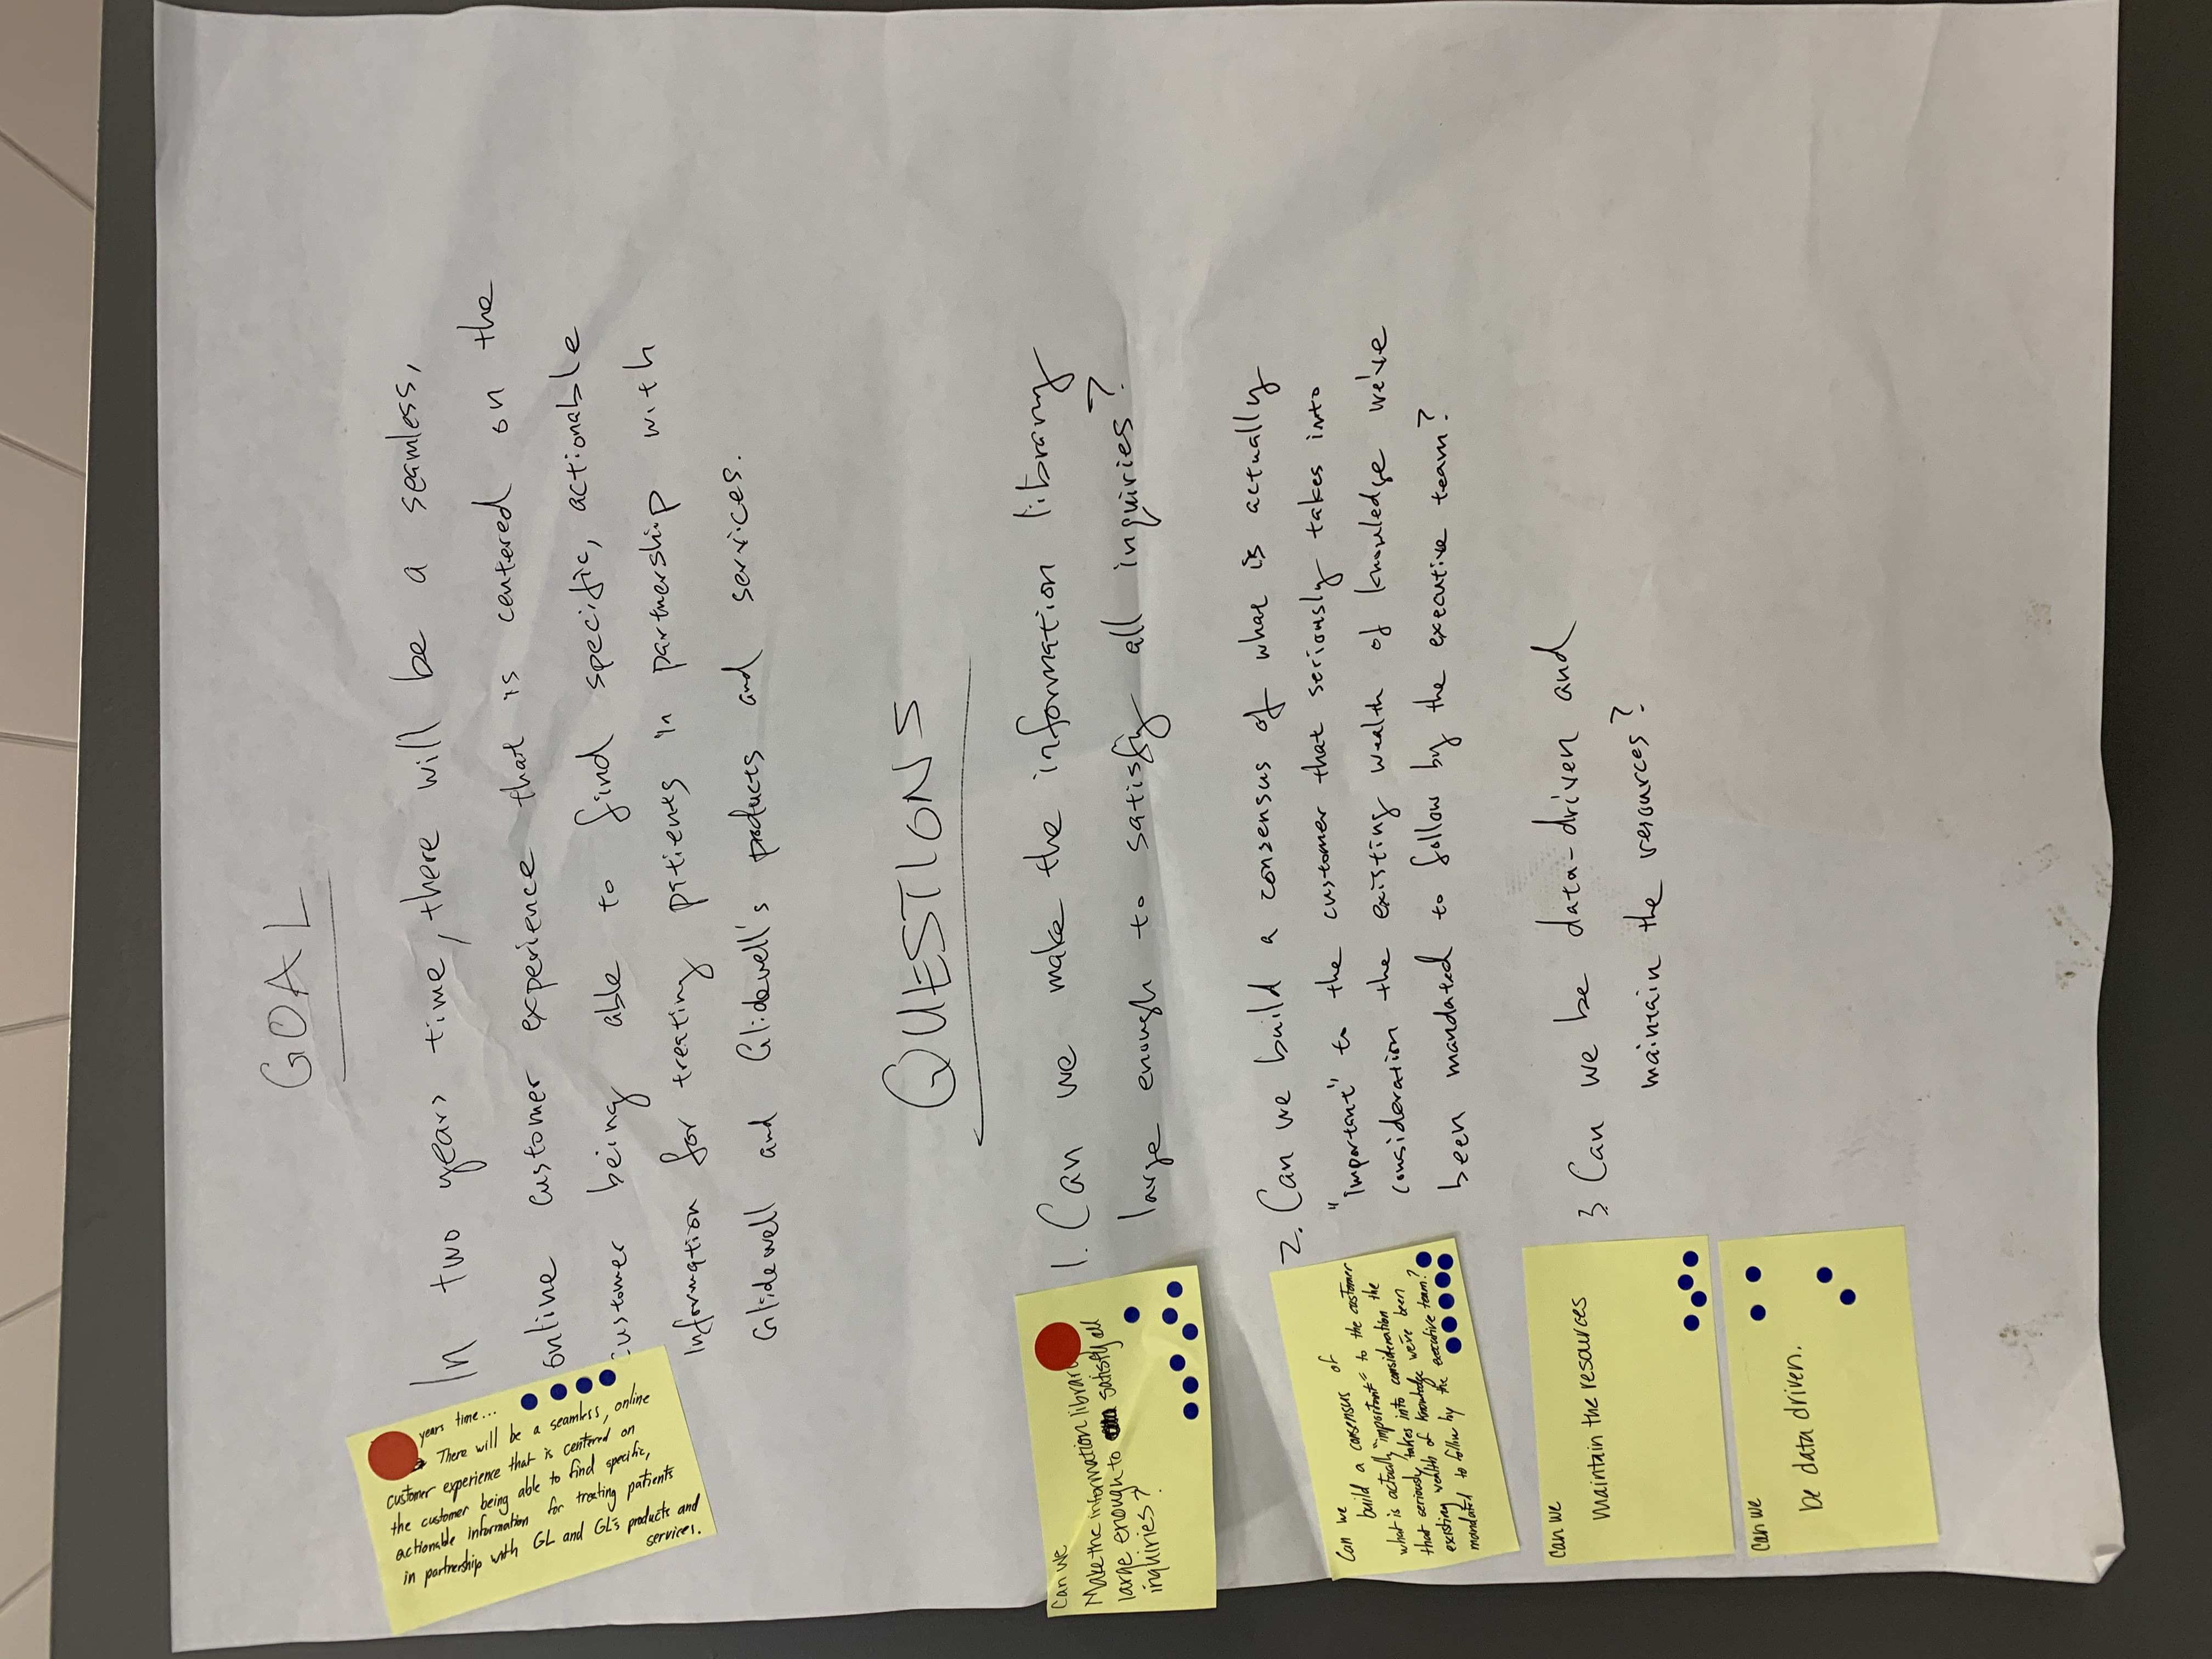 GOAL
years time...
There will be a seamless, online
customer experience that is centered on
the customer being able to find specific,
actionable information for treating patients
in partnership with GL and GL's products and
services.
In two years time, there will be a seamless,
online customer experience that is centered on the
customer being able to find specific, actionable
information for treating patients in partnership with
Glidewell and Glidewell's products and services.
QUESTIONS
Can we
Make the information library
large enough to satisfy all
inquiries?
1. Can we make the information library
large enough to satisfy all inquiries?
Can we
build a consensus of
what is actually "important" to the customer
that seriously takes into consideration the
existing wealth of knowledge we've been
mandated to follow by the executive team?
2. Can we build a consensus of what is actually
"important" to the customer that seriously takes into
consideration the existing wealth of knowledge we've
been mandated to follow by the executive team?
Can we
Maintain the resources
3 Can we be data-driven and
maintain the resources?
Can we
be data driven.